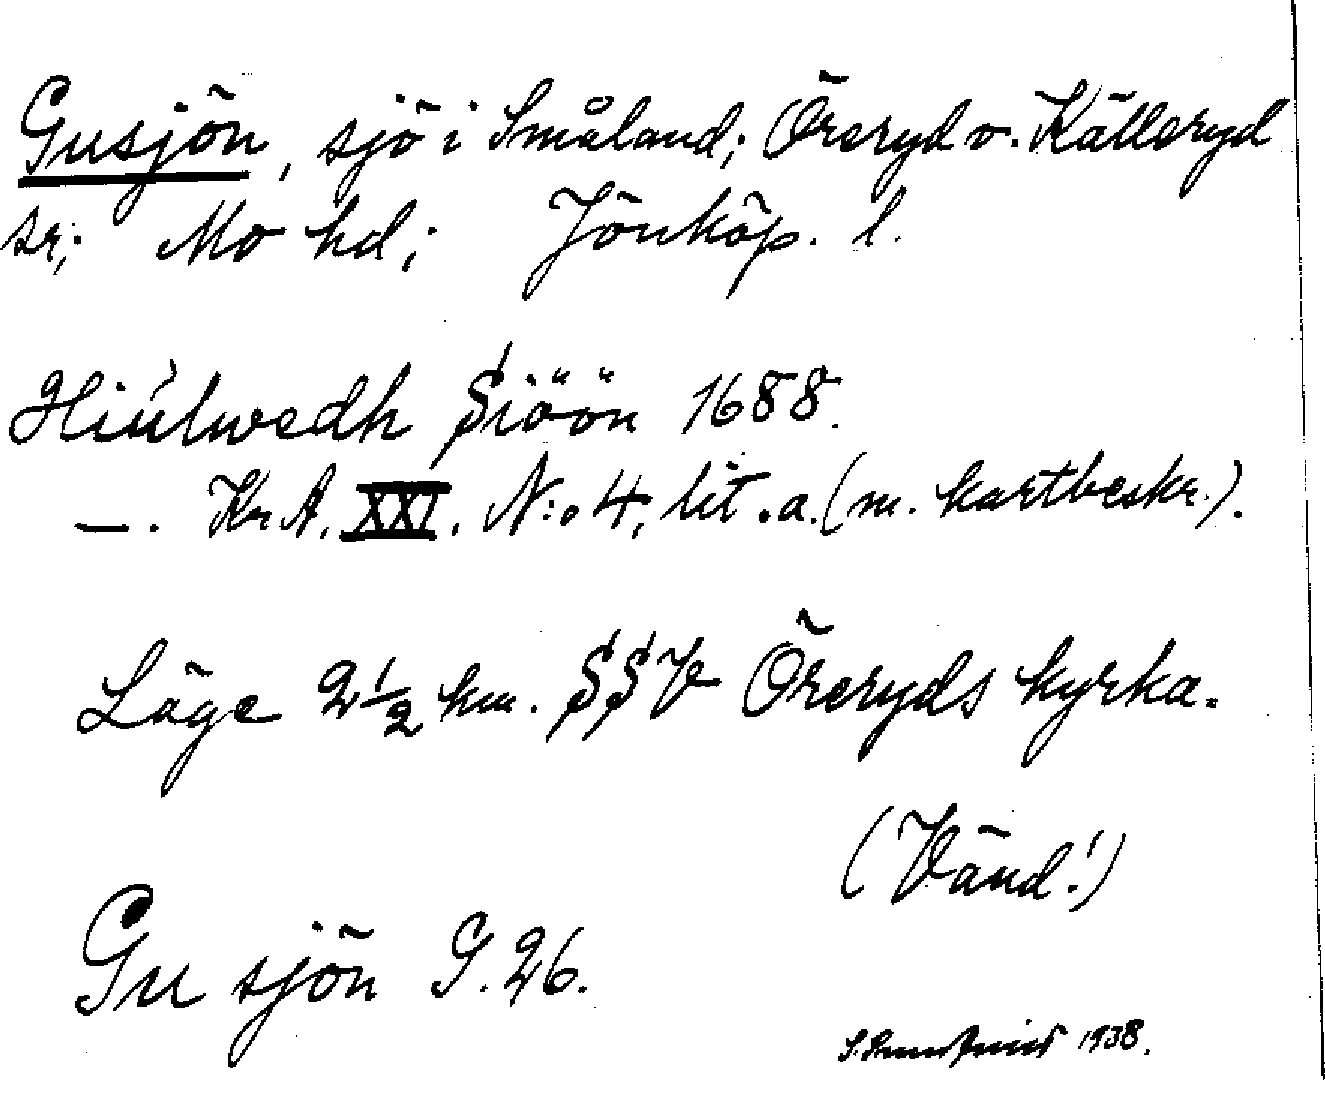 Gusjön, sjö i Småland; Öreryd o. Källeryd
sr; Mo hd; Jönköp. l.
Hiúlwedh Siöön 1688.
—. Kr A. XXI. N:o 4, lit. a. (m. kartbeskr.).
Läge 2 1/2 km. SSV Öreryds kyrka.
(Vänd!)
Gu sjön G. 26.
1938.